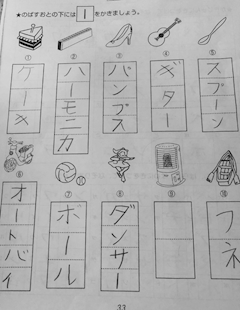 ★のばすおとの下には｜をかきましょう。
①
②
③
④
⑤
ケーキ
ハーモニカ
パンプス
ギター
スプーン
⑥
⑦
⑧
⑨
⑩
オートバイ
ボール
ダンサー
フネ
33